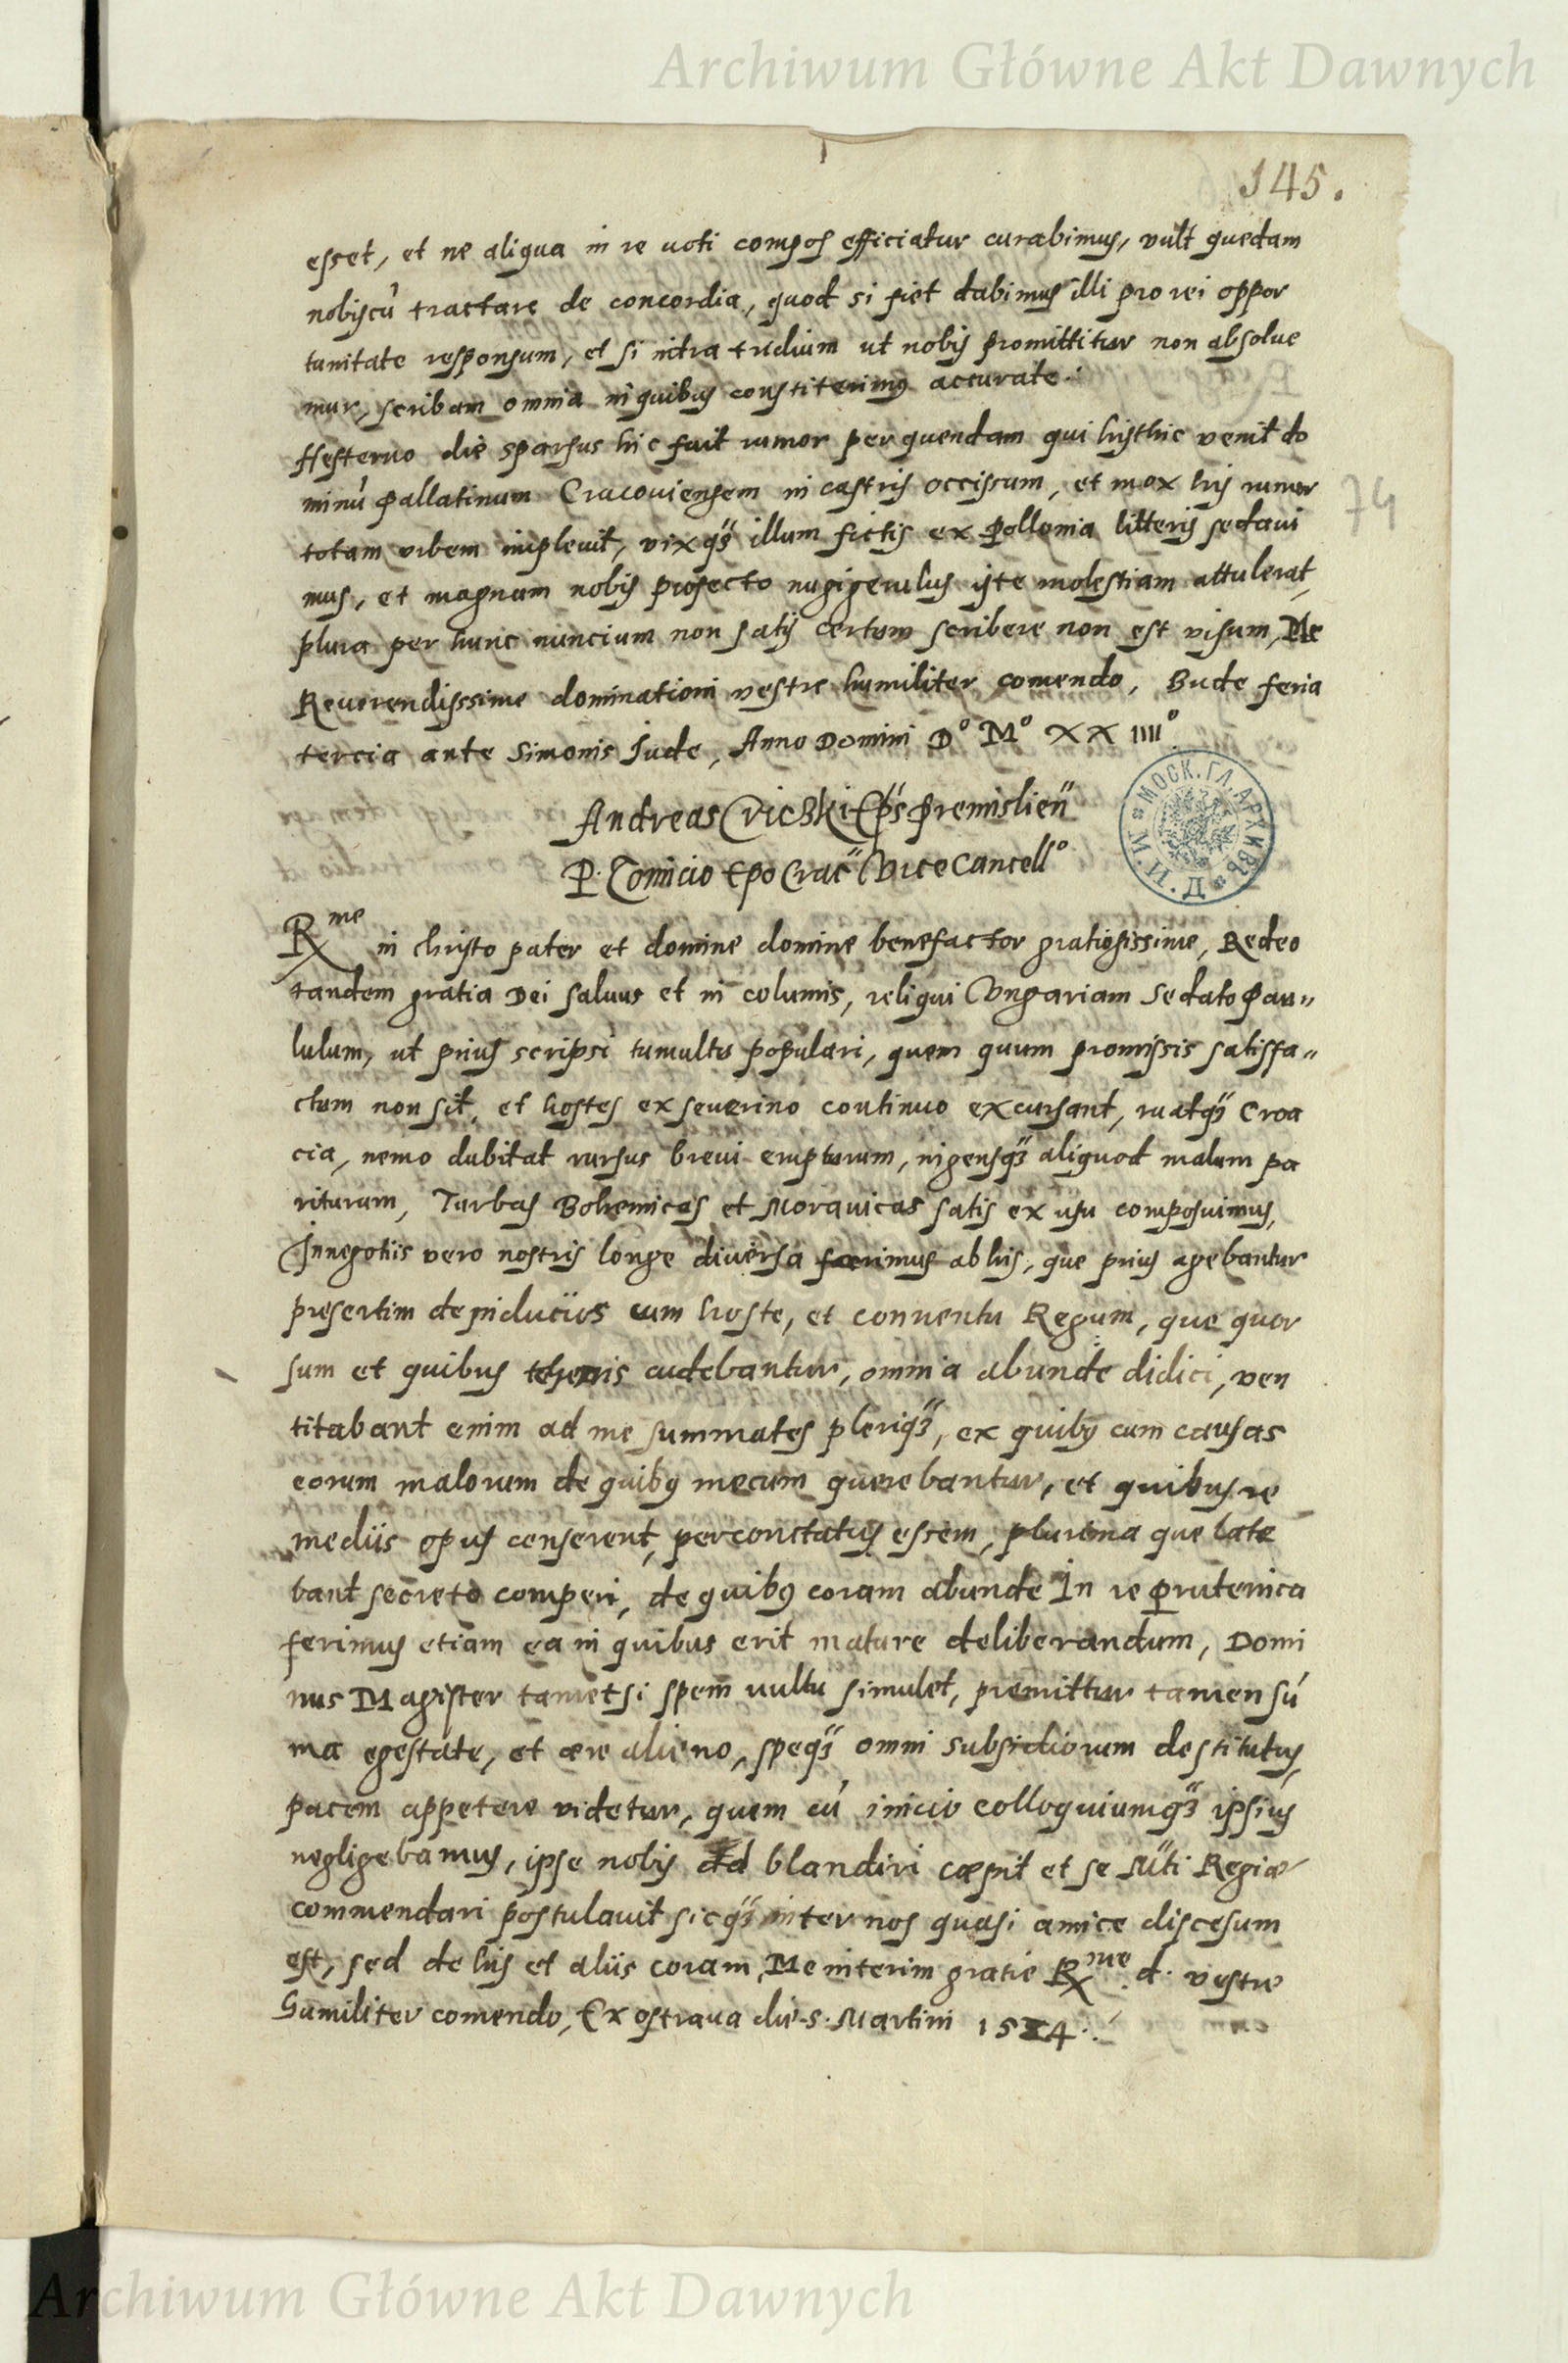 Archiwum Główne Akt Dawnych
145.
esset, et ne aliqua in re uoti compos efficiatur curabimus, vult quedam
nobiscū tractare de concordia, quod si fiet dabimus illi pro rei oppor
tunitate responsum, et si intra triduum ut nobis promittitur non absolue
mur, scribam omnia in quibus constiterimus accurate.
Hesterno die sparsus hic fuit rumor per quendam qui histhic venit do
minū pallatinum Cracouiensem in castris occissum, et mox his rumor
74
totam vrbem impleuit, vixq3 illum fictis ex pollonia litteris sedaui
mus, et magnam nobis profecto nugigerulus iste molestiam attulerat,
plura per hunc nuncium non satis certum scribere non est visum, Me
Reuerendissime dominationi vestre humiliter comendo, Bude feria
tercia ante Simonis Jude, Anno Domini D° M° XX IIII°
Andreas Criczki Ep̄s Premislien̄
P. Tomicio Epo Crac̄ Vicecancell°
R^me in christo pater et domine domine benefactor gratiosissime, Redeo
tandem gratia Dei saluus et in columis, reliqui Vngariam Sedato pau„
lulum, ut prius scripsi tumultu populari, quem quum promissis satisfa„
ctum non sit, et hostes ex seuerino continuo excursant, ruatq3 Croa
cia, nemo dubitat rursus breui erupturum, ingensq3 aliquod malum pa
riturum, Turbas Bohemicas et Morauicas satis ex usu composuimus,
In negotiis vero nostris longe diuersa ferimus ab his, que prius agebantur
presertim de induciis cum hoste, et conuentu Regum, que quor
sum et quibus cudebantur, omnia abunde didici, ven
titabant enim ad me summates pleriq3, ex quibus cum causas
eorum malorum de quibus mecum querebantur, et quibus re
mediis opus censerent, percontatus essem, plurima que late
bant secreto comperi, de quibus coram abunde In re prutenica
ferimus etiam ea in quibus erit mature deliberandum, Domi
nus Magister tametsi spem uultu simulet, premittur tamen sū
ma egestate, et ære alieno, speq3 omni subsidiorum destitutus,
pacem appetere videtur, quem cū inicio colloquiumq3 ipsius
negligebamus, ipse nobis blandiri cæpit et se Mti Regiæ
commendari postulauit sicq3 inter nos quasi amice discesum
est, sed de his et aliis coram, Me interim gratie R^me d. vestre
humiliter comendo, Ex ostraua die s. Martini 1524.
МОСК. ГЛ. АРХИВЪ М. И. Д.
Archiwum Główne Akt Dawnych